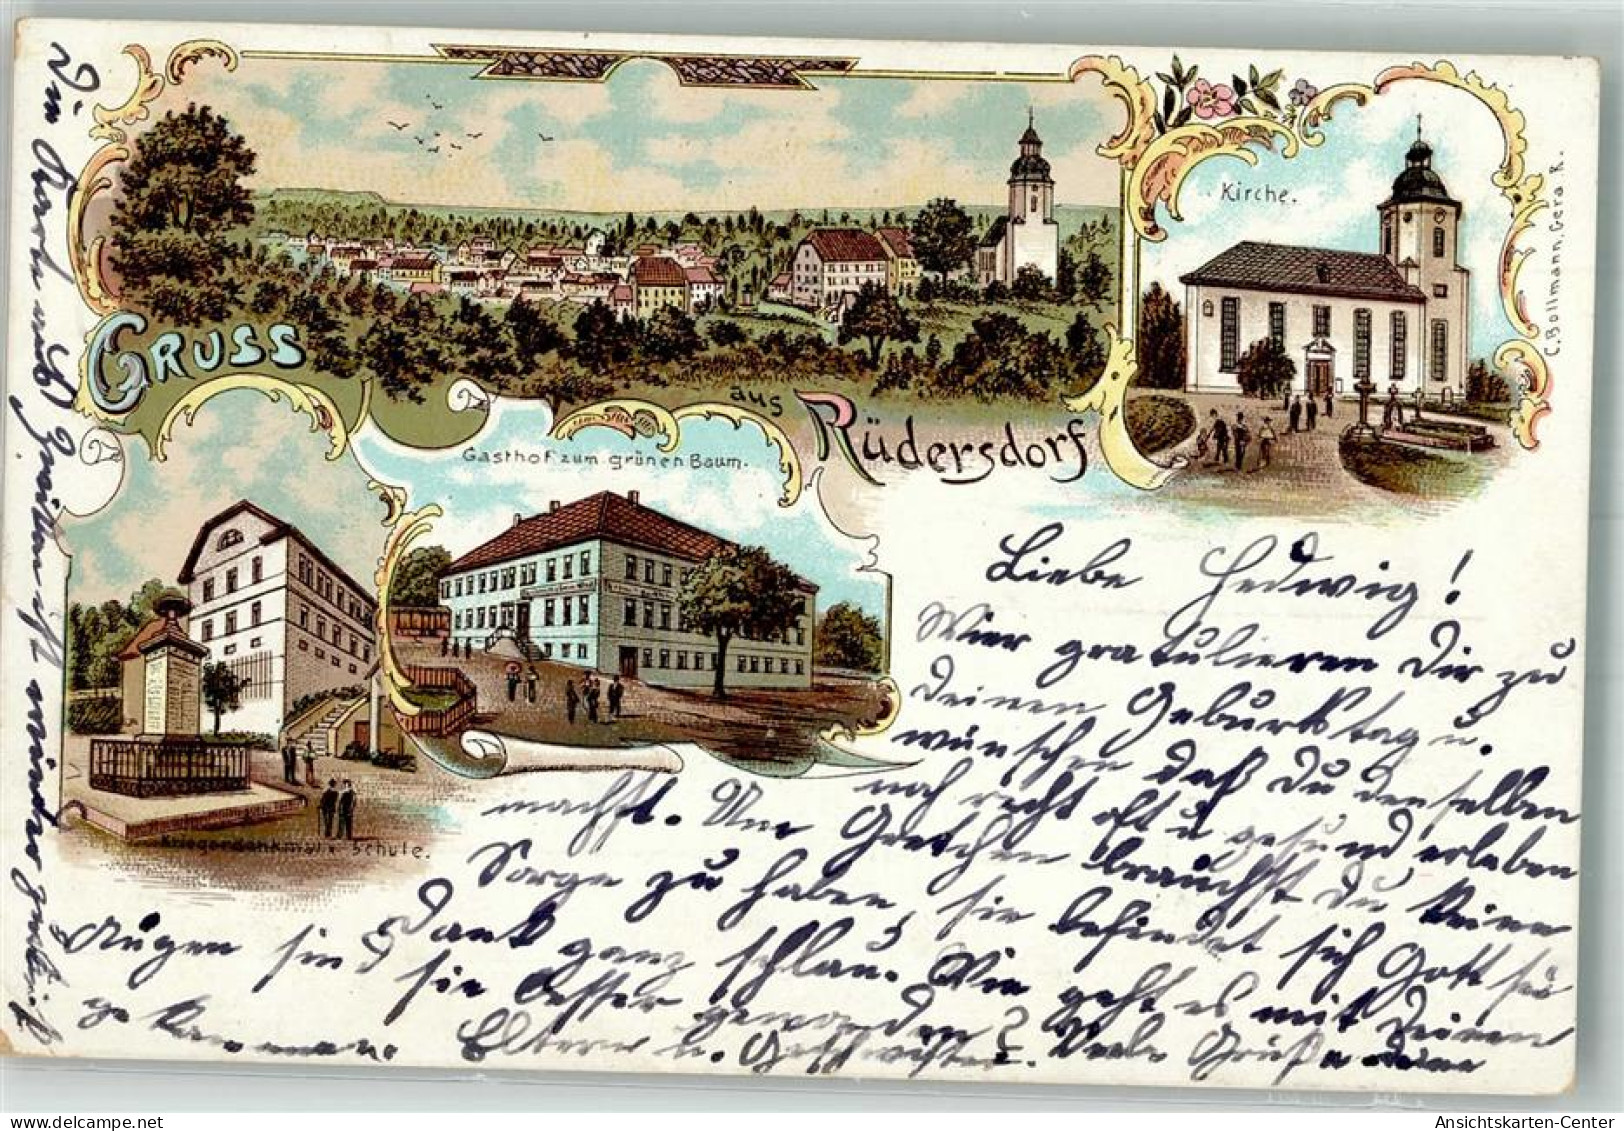 GRUSS
aus
Rüdersdorf
Kirche.
C. Bollmann, Gera R.
Gasthof zum grünen Baum.
Kriegerdenkmal u. Schule.
Liebe Hedwig!
Wier gratulieren Dir zu
deinen Geburtstag u.
wünschen daß Du denselben
noch recht oft u gesund erleben
machst. Um Gretchen brauchst Du keine
Sorge zu haben, sie befindet sich Gott sei
Dank ganz schlau. Wie geht es mit Deinen
Augen sind sie besser geworden?
Eltern u. Geschwister. Viele Grüße deine
Die Karte
Ansichtskarten-Center